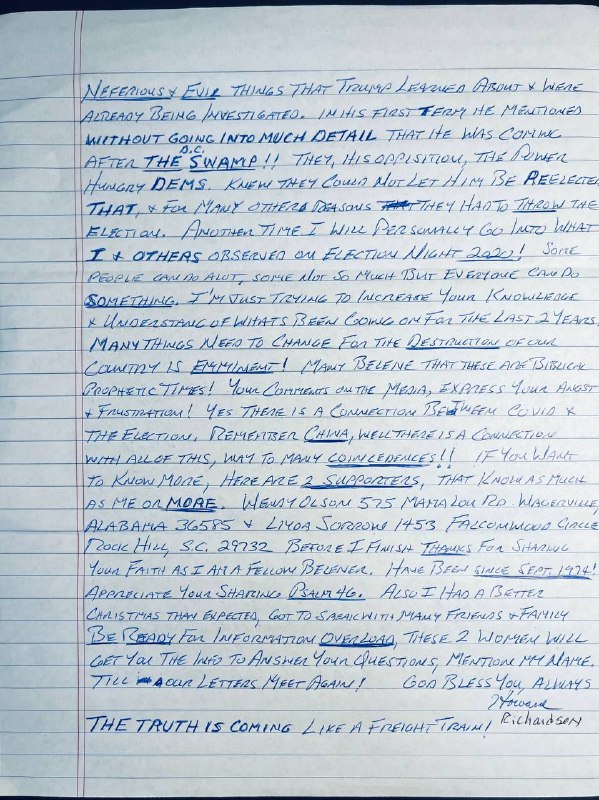 NEFERIOUS & EVIL THINGS THAT TRUMP LEARNED ABOUT & WERE
ALREADY BEING INVESTIGATED. IN HIS FIRST TERM HE MENTIONED
WITHOUT GOING INTO MUCH DETAIL THAT HE WAS COMING
AFTER THE D.C. SWAMP!! THEY, HIS OPPISITION, THE POWER
HUNGRY DEMS. KNEW THEY COULD NOT LET HIM BE REELECTED
THAT, & FOR MANY OTHER REASONS THEY HAD TO THROW THE
ELECTION. ANOTHER TIME I WILL PERSONALLY GO INTO WHAT
I & OTHERS OBSERVED ON ELECTION NIGHT 2020! SOME
PEOPLE CAN DO ALOT, SOME NOT SO MUCH BUT EVERYONE CAN DO
SOMETHING. I'M JUST TRYING TO INCREASE YOUR KNOWLEDGE
& UNDERSTANG OF WHATS BEEN GOING ON FOR THE LAST 2 YEARS.
MANY THINGS NEED TO CHANGE FOR THE DESTRUCTION OF OUR
COUNTRY IS EMMIMENT! MANY BELEIVE THAT THESE ARE BIBLICAL
PROPHETIC TIMES! YOUR COMMENTS ON THE MEDIA, EXPRESS YOUR ANGST
& FRUSTRATION! YES THERE IS A CONNECTION BETWEEN COVID &
THE ELECTION. REMEMBER CHINA, WELL THERE IS A CONNECTION
WITH ALL OF THIS, WAY TO MANY COINCEDENCES!! IF YOU WANT
TO KNOW MORE, HERE ARE 2 SUPPORTERS, THAT KNOW AS MUCH
AS ME OR MORE. WENDY OLSON 575 MAMA LOU RD. WAGERVILLE,
ALABAMA 36585 & LINDA SORROW 1453 FALCONWOOD CIRCLE
ROCK HILL, S.C. 29732 BEFORE I FINISH THANKS FOR SHARING
YOUR FAITH AS I AM A FELLOW BELEIVER. HAVE BEEN SINCE SEPT. 1974!
APPRECIATE YOUR SHARING PSALM 46. ALSO I HAD A BETTER
CHRISTMAS THAN EXPECTED, GOT TO SPEAK WITH MANY FRIENDS & FAMILY
BE READY FOR INFORMATION OVERLOAD, THESE 2 WOMEN WILL
GET YOU THE INFO TO ANSWER YOUR QUESTIONS, MENTION MY NAME.
TILL OUR LETTERS MEET AGAIN! GOD BLESS YOU, ALWAYS
Howard
Richardson
THE TRUTH IS COMING LIKE A FREIGHT TRAIN!